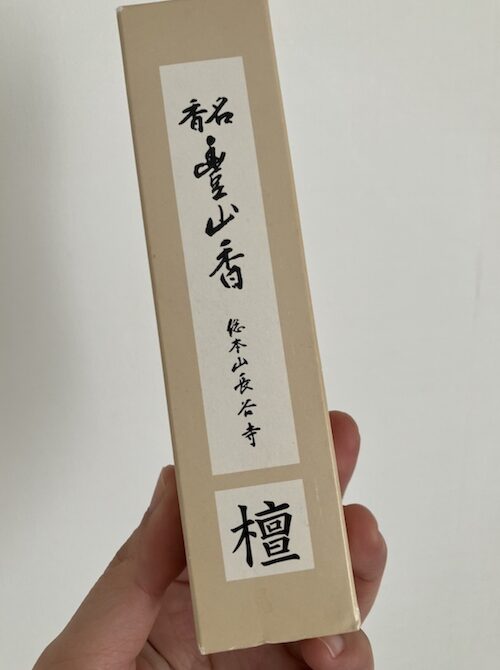 名香
豊山香
総本山長谷寺
檀